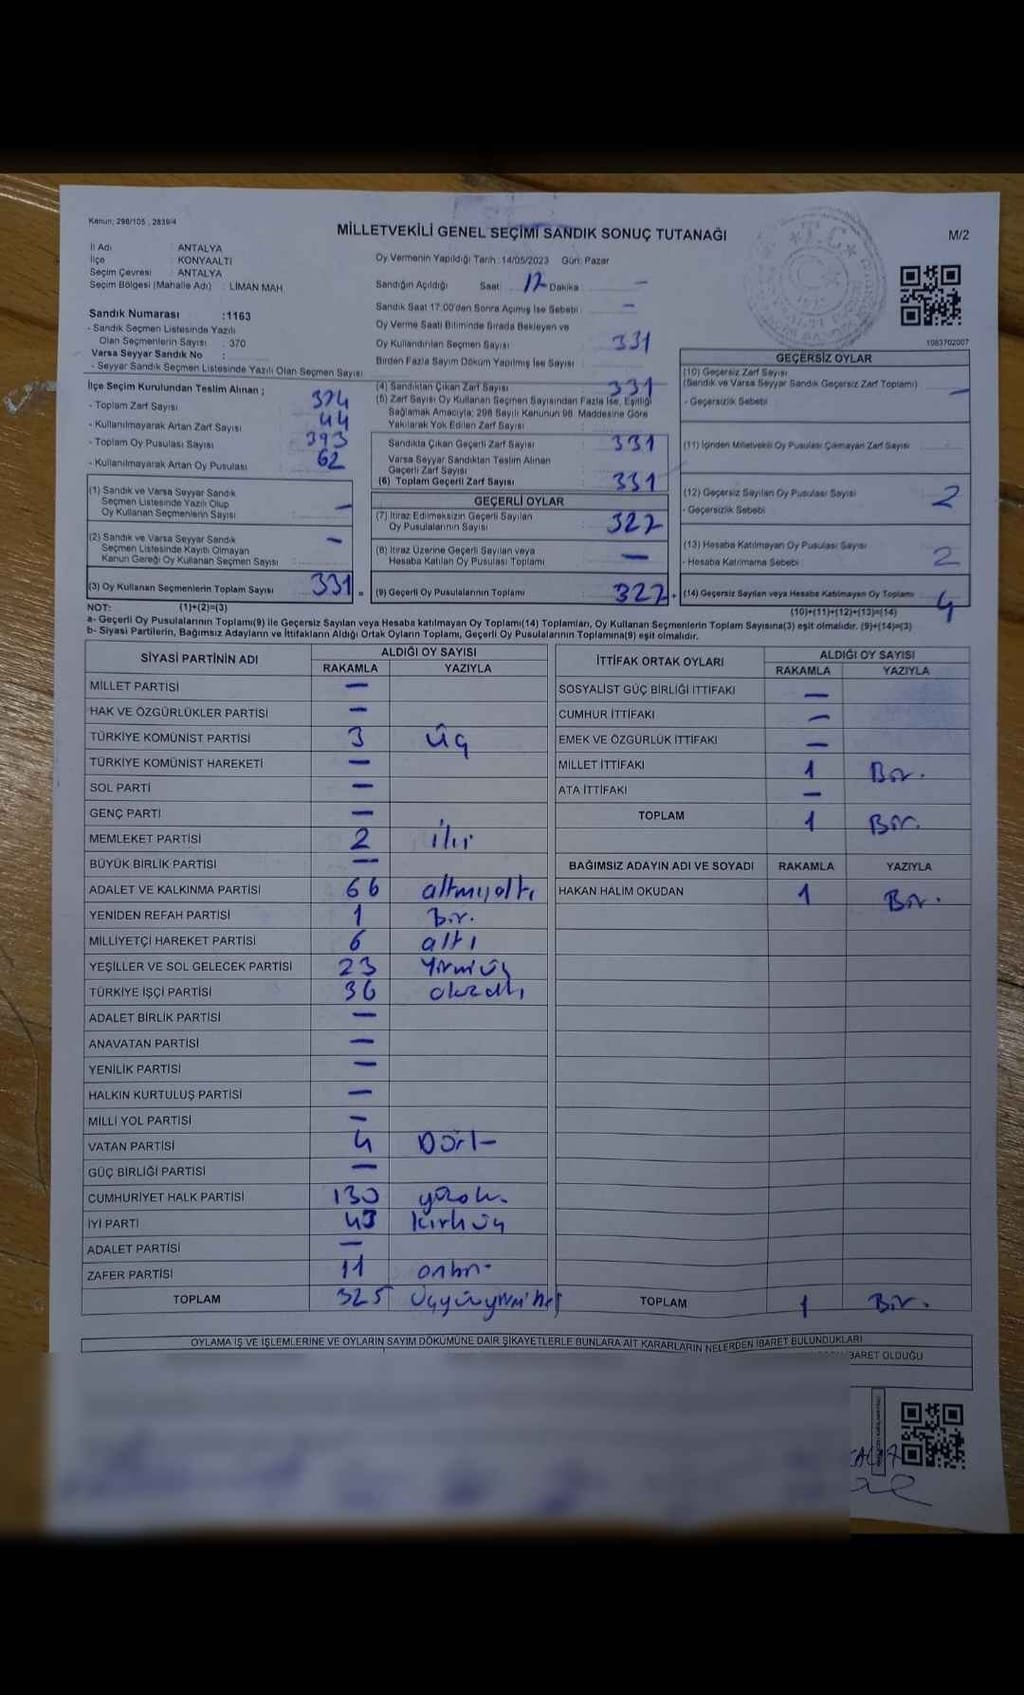 Kanun: 298/105 , 2839/4
MİLLETVEKİLİ GENEL SEÇİMİ SANDIK SONUÇ TUTANAĞI
M/2
İl Adı : ANTALYA
İlçe : KONYAALTI
Seçim Çevresi : ANTALYA
Seçim Bölgesi (Mahalle Adı) : LİMAN MAH
Oy Vermenin Yapıldığı Tarih :14/05/2023 Gün: Pazar
Sandığın Açıldığı Saat 17 Dakika —
Sandık Saat 17:00'den Sonra Açılmış İse Sebebi : —
Oy Verme Saati Bitiminde Sırada Bekleyen ve
Oy Kullandırılan Seçmen Sayısı : 331
Birden Fazla Sayım Döküm Yapılmış İse Sayısı
Sandık Numarası :1163
- Sandık Seçmen Listesinde Yazılı
Olan Seçmenlerin Sayısı : 370
Varsa Seyyar Sandık No :
- Seyyar Sandık Seçmen Listesinde Yazılı Olan Seçmen Sayısı
1083702007
İlçe Seçim Kurulundan Teslim Alınan ;
- Toplam Zarf Sayısı
- Kullanılmayarak Artan Zarf Sayısı 44
- Toplam Oy Pusulası Sayısı 393
- Kullanılmayarak Artan Oy Pusulası 62
(1) Sandık ve Varsa Seyyar Sandık
Seçmen Listesinde Yazılı Olup
Oy Kullanan Seçmenlerin Sayısı —
(2) Sandık ve Varsa Seyyar Sandık
Seçmen Listesinde Kayıtlı Olmayan
Kanun Gereği Oy Kullanan Seçmen Sayısı —
(3) Oy Kullanan Seçmenlerin Toplam Sayısı 331 =
(4) Sandıktan Çıkan Zarf Sayısı 331
(5) Zarf Sayısı Oy Kullanan Seçmen Sayısından Fazla İse, Eşitliği
Sağlamak Amacıyla; 298 Sayılı Kanunun 98. Maddesine Göre
Yakılarak Yok Edilen Zarf Sayısı
Sandıkta Çıkan Geçerli Zarf Sayısı 331
Varsa Seyyar Sandıktan Teslim Alınan
Geçerli Zarf Sayısı
(6) Toplam Geçerli Zarf Sayısı 331
GEÇERLİ OYLAR
(7) İtiraz Edilmeksizin Geçerli Sayılan
Oy Pusulalarının Sayısı 327
(8) İtiraz Üzerine Geçerli Sayılan veya
Hesaba Katılan Oy Pusulası Toplamı —
(9) Geçerli Oy Pusulalarının Toplamı 327 +
GEÇERSİZ OYLAR
(10) Geçersiz Zarf Sayısı
(Sandık ve Varsa Seyyar Sandık Geçersiz Zarf Toplamı) —
- Geçersizlik Sebebi
(11) İçinden Milletvekili Oy Pusulası Çıkmayan Zarf Sayısı
(12) Geçersiz Sayılan Oy Pusulası Sayısı 2
- Geçersizlik Sebebi
(13) Hesaba Katılmayan Oy Pusulası Sayısı 2
- Hesaba Katılmama Sebebi
(14) Geçersiz Sayılan veya Hesaba Katılmayan Oy Toplamı 4
NOT: (1)+(2)=(3)
(10)+(11)+(12)+(13)=(14)
a- Geçerli Oy Pusulalarının Toplamı(9) ile Geçersiz Sayılan veya Hesaba katılmayan Oy Toplamı(14) Toplamları, Oy Kullanan Seçmenlerin Toplam Sayısına(3) eşit olmalıdır. (9)+(14)=(3)
b- Siyasi Partilerin, Bağımsız Adayların ve İttifakların Aldığı Ortak Oyların Toplamı, Geçerli Oy Pusulalarının Toplamına(9) eşit olmalıdır.
SİYASİ PARTİNİN ADI
ALDIĞI OY SAYISI
RAKAMLA YAZIYLA
MİLLET PARTİSİ —
HAK VE ÖZGÜRLÜKLER PARTİSİ —
TÜRKİYE KOMÜNİST PARTİSİ 3 üç
TÜRKİYE KOMÜNİST HAREKETİ —
SOL PARTİ —
GENÇ PARTİ —
MEMLEKET PARTİSİ 2 iki
BÜYÜK BİRLİK PARTİSİ —
ADALET VE KALKINMA PARTİSİ 66 altmışaltı
YENİDEN REFAH PARTİSİ 1 Bir.
MİLLİYETÇİ HAREKET PARTİSİ 6 altı
YEŞİLLER VE SOL GELECEK PARTİSİ 23 Yirmiüç
TÜRKİYE İŞÇİ PARTİSİ 36
ADALET BİRLİK PARTİSİ —
ANAVATAN PARTİSİ —
YENİLİK PARTİSİ —
HALKIN KURTULUŞ PARTİSİ —
MİLLİ YOL PARTİSİ —
VATAN PARTİSİ 4 Dört
GÜÇ BİRLİĞİ PARTİSİ —
CUMHURİYET HALK PARTİSİ 130
İYİ PARTİ 43 kırküç
ADALET PARTİSİ —
ZAFER PARTİSİ 11 onbir
TOPLAM 325 üçyüzyirmibeş
İTTİFAK ORTAK OYLARI
ALDIĞI OY SAYISI
RAKAMLA YAZIYLA
SOSYALİST GÜÇ BİRLİĞİ İTTİFAKI —
CUMHUR İTTİFAKI —
EMEK VE ÖZGÜRLÜK İTTİFAKI —
MİLLET İTTİFAKI 1 Bir.
ATA İTTİFAKI —
TOPLAM 1 Bir.
BAĞIMSIZ ADAYIN ADI VE SOYADI RAKAMLA YAZIYLA
HAKAN HALİM OKUDAN 1 Bir.
TOPLAM 1 Bir.
OYLAMA İŞ VE İŞLEMLERİNE VE OYLARIN SAYIM DÖKÜMÜNE DAİR ŞİKAYETLERLE BUNLARA AİT KARARLARIN NELERDEN İBARET BULUNDUKLARI
BARET OLDUĞU